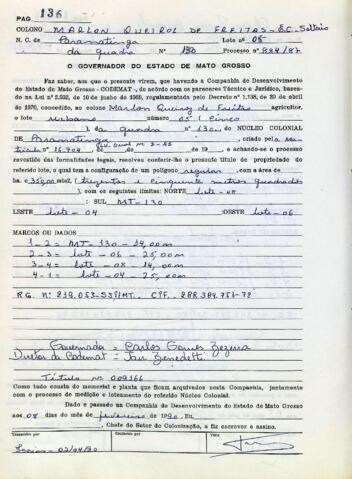 PAG. 136
COLONO MARLON QUEIROZ DE FREITAS - B.C. Solteiro
N. C. de Paranatinga Lote nº 05
da quadra Nº 130 Processo nº 834/87
O GOVERNADOR DO ESTADO DE MATO GROSSO
Faz saber, aos que o presente virem, que havendo a Companhia de Desenvolvimento
do Estado de Mato Grosso - CODEMAT -, de acordo com os pareceres Técnico e Jurídico, basea-
do na Lei nº de 10 de junho de regulamentada pelo Decreto nº 1.138, de 20 de abril
de 1970, concedido, ao colono Marlon Queiroz de Freitas agricultor,
o lote urbano número 05 ( Cinco
) da quadra nº 130 NÚCLEO COLONIAL
DE Paranatinga criado pela
de de de 19 , e achando-se o processo
revestido das formalidades legais, resolveu conferir-lhe o presente título de propriedade do
referido lote, o qual tem a configuração de um polígono regular, com a área de
350,00 ( trezentos e cinquenta metros quadrados
), com os seguintes limites: NORTE lote - 08
: SUL MT - 130
LESTE lote - 04 :OESTE lote - 06
MARCOS OU DADOS
1 - 2 = MT - 130 - 14,00m
2 - 3 = lote - 06 - 25,00m
3 - 4 = lote - 08 - 14,00m
4 - 1 = lote - 04 - 25,00m
RG. nº 219.053-SSP/MT. CPF. 288.384.751-72
Governador = Carlos Gomes Bezerra
Diretor da Codemat = Jair Benedetti
Título nº 009166
Como tudo consta do memorial e planta que ficam arquivados nesta Companhia, juntamente
com o processo de medição e loteamento do referido Núcleo Colonial.
Dado e passado na Companhia de Desenvolvimento do Estado de Mato Grosso
aos 08 dias do mês de fevereiro de 1990. Eu,
, Chefe do Setor de Colonização, o fiz escrever e assino.
Transcrito por Conferido por Visto
02/04/90